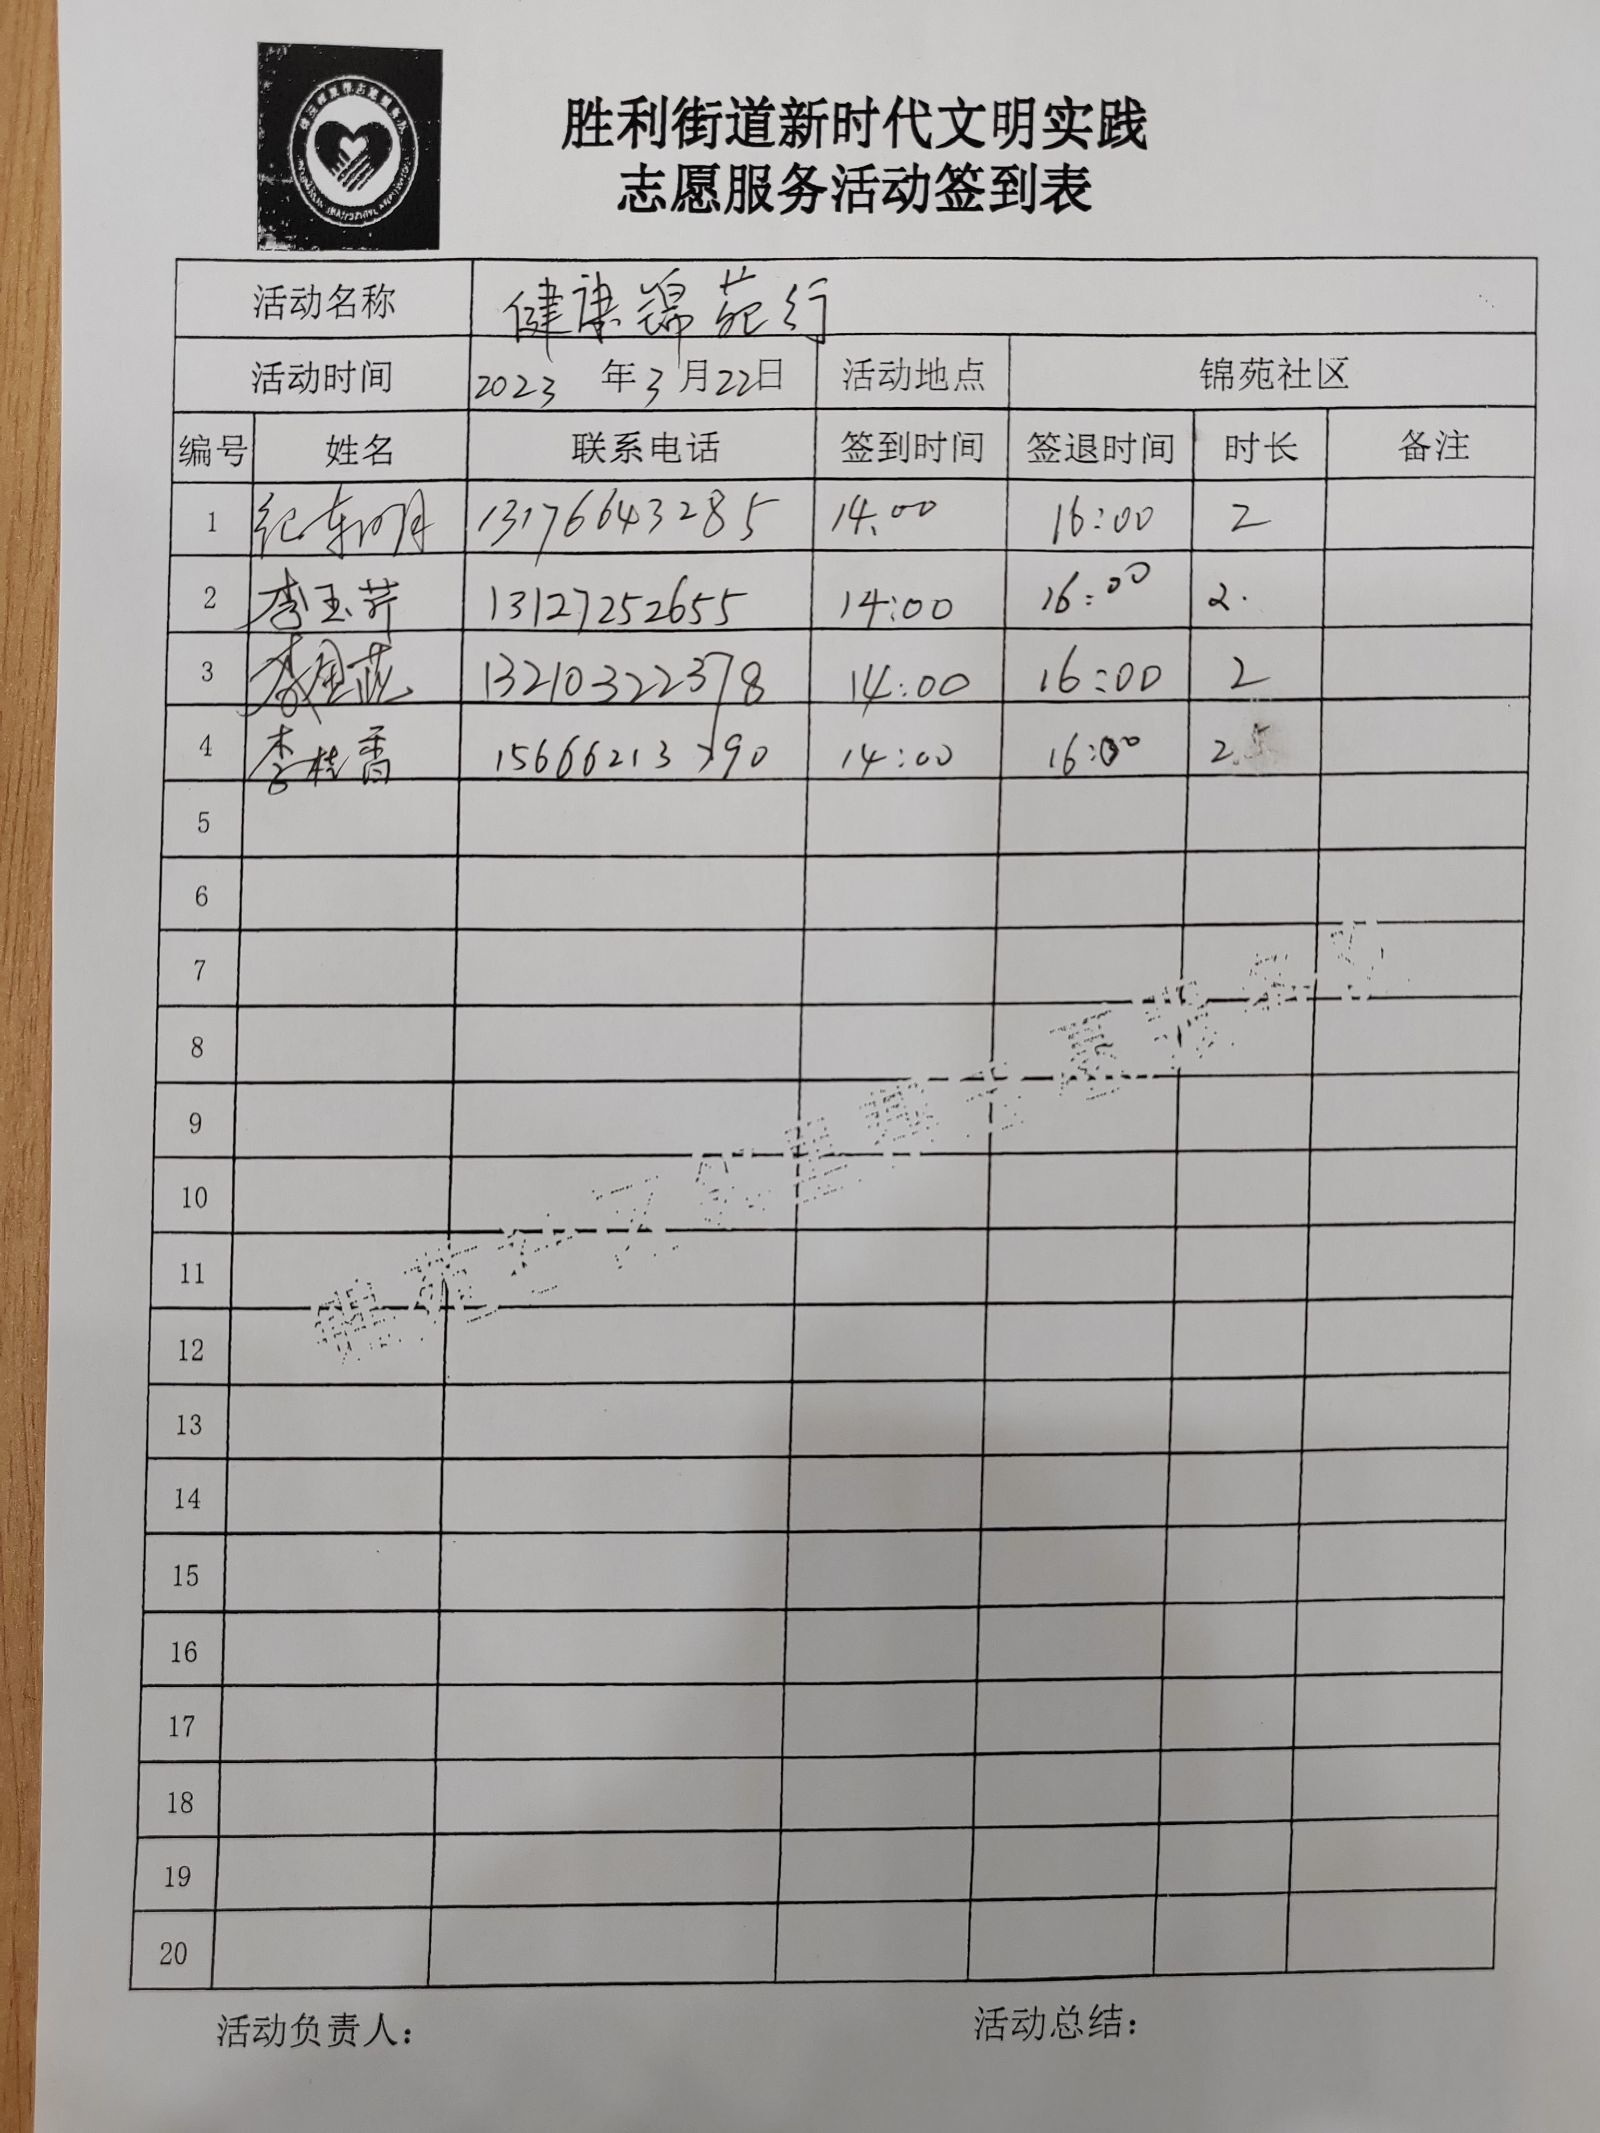 胜利街道新时代文明实践
志愿服务活动签到表
活动名称 健康锦苑行
活动时间 2023 年 3 月 22 日 活动地点 锦苑社区
编号 姓名 联系电话 签到时间 签退时间 时长 备注
1 纪东明 13176643285 14:00 16:00 2
2 李玉芹 13127252655 14:00 16:00 2.
3 13210322378 14:00 16:00 2
4 李桂香 15666213790 14:00 16:00 2
5
6
7
8
9
10
11
12
13
14
15
16
17
18
19
20
活动负责人： 活动总结：